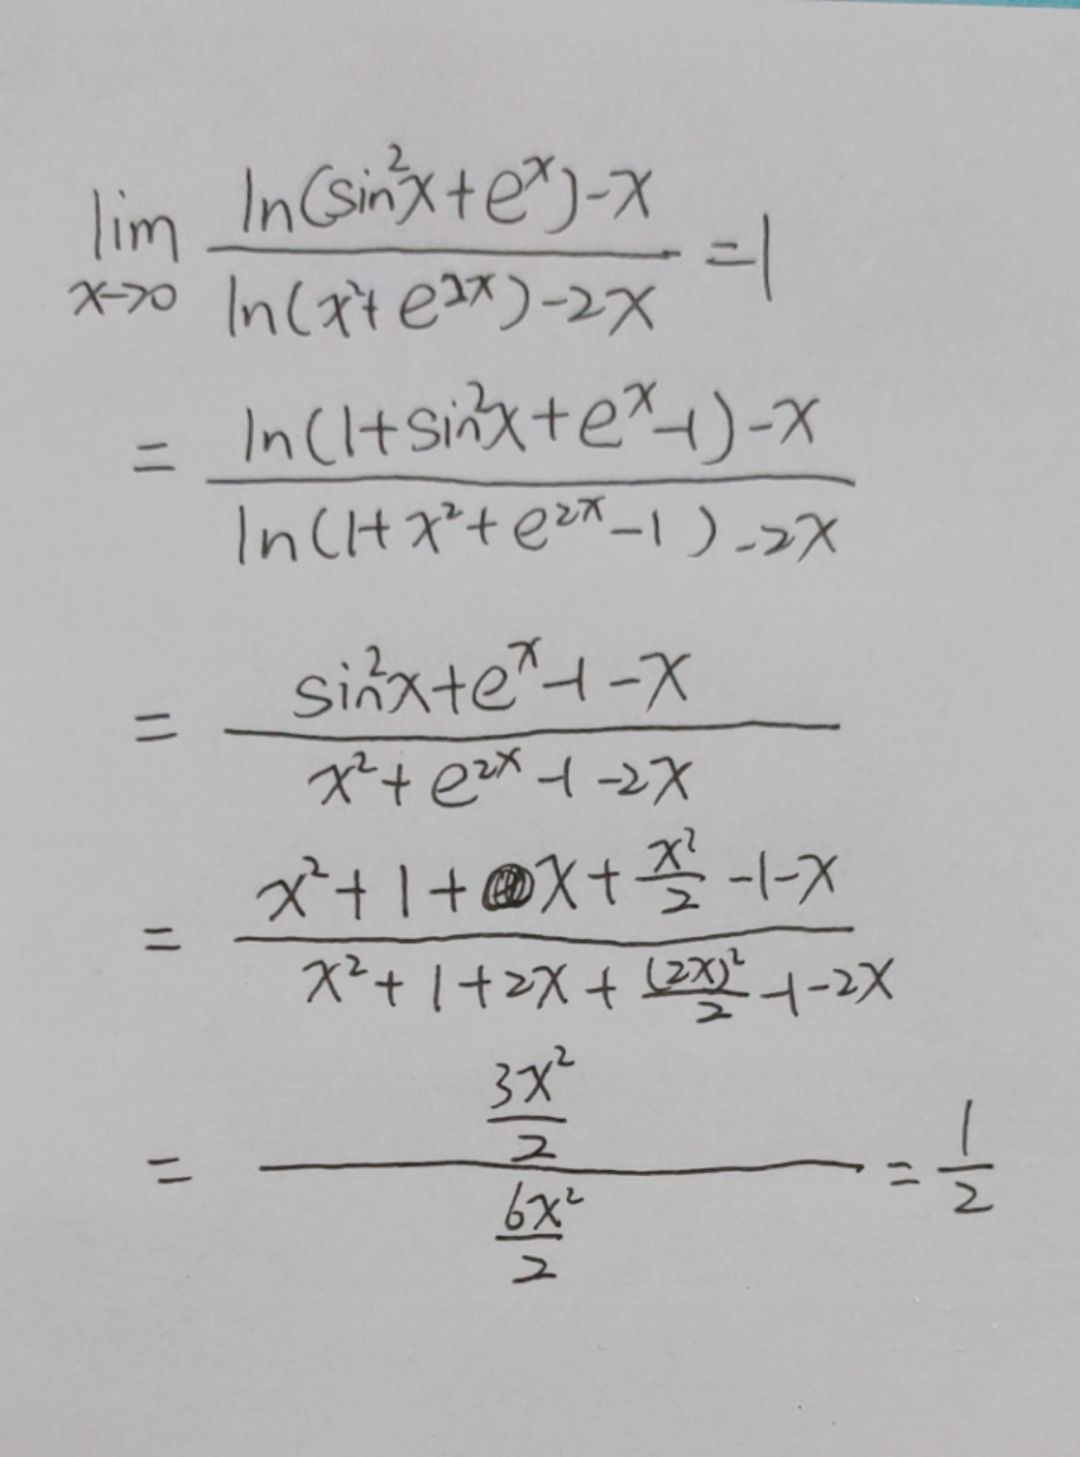 lim x→0 (ln(sin²x+eˣ)-x)/(ln(x²+e²ˣ)-2x) =1
= (ln(1+sin²x+eˣ-1)-x)/(ln(1+x²+e²ˣ-1)-2x)
= (sin²x+eˣ-1-x)/(x²+e²ˣ-1-2x)
= (x²+1+x+x²/2-1-x)/(x²+1+2x+(2x)²/2-1-2x)
= (3x²/2)/(6x²/2) = 1/2